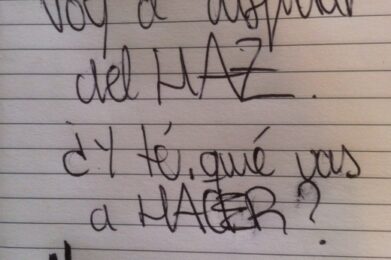 Voy a disfrutar
del HAZ.
¿Y tú, qué vas
a HACER?